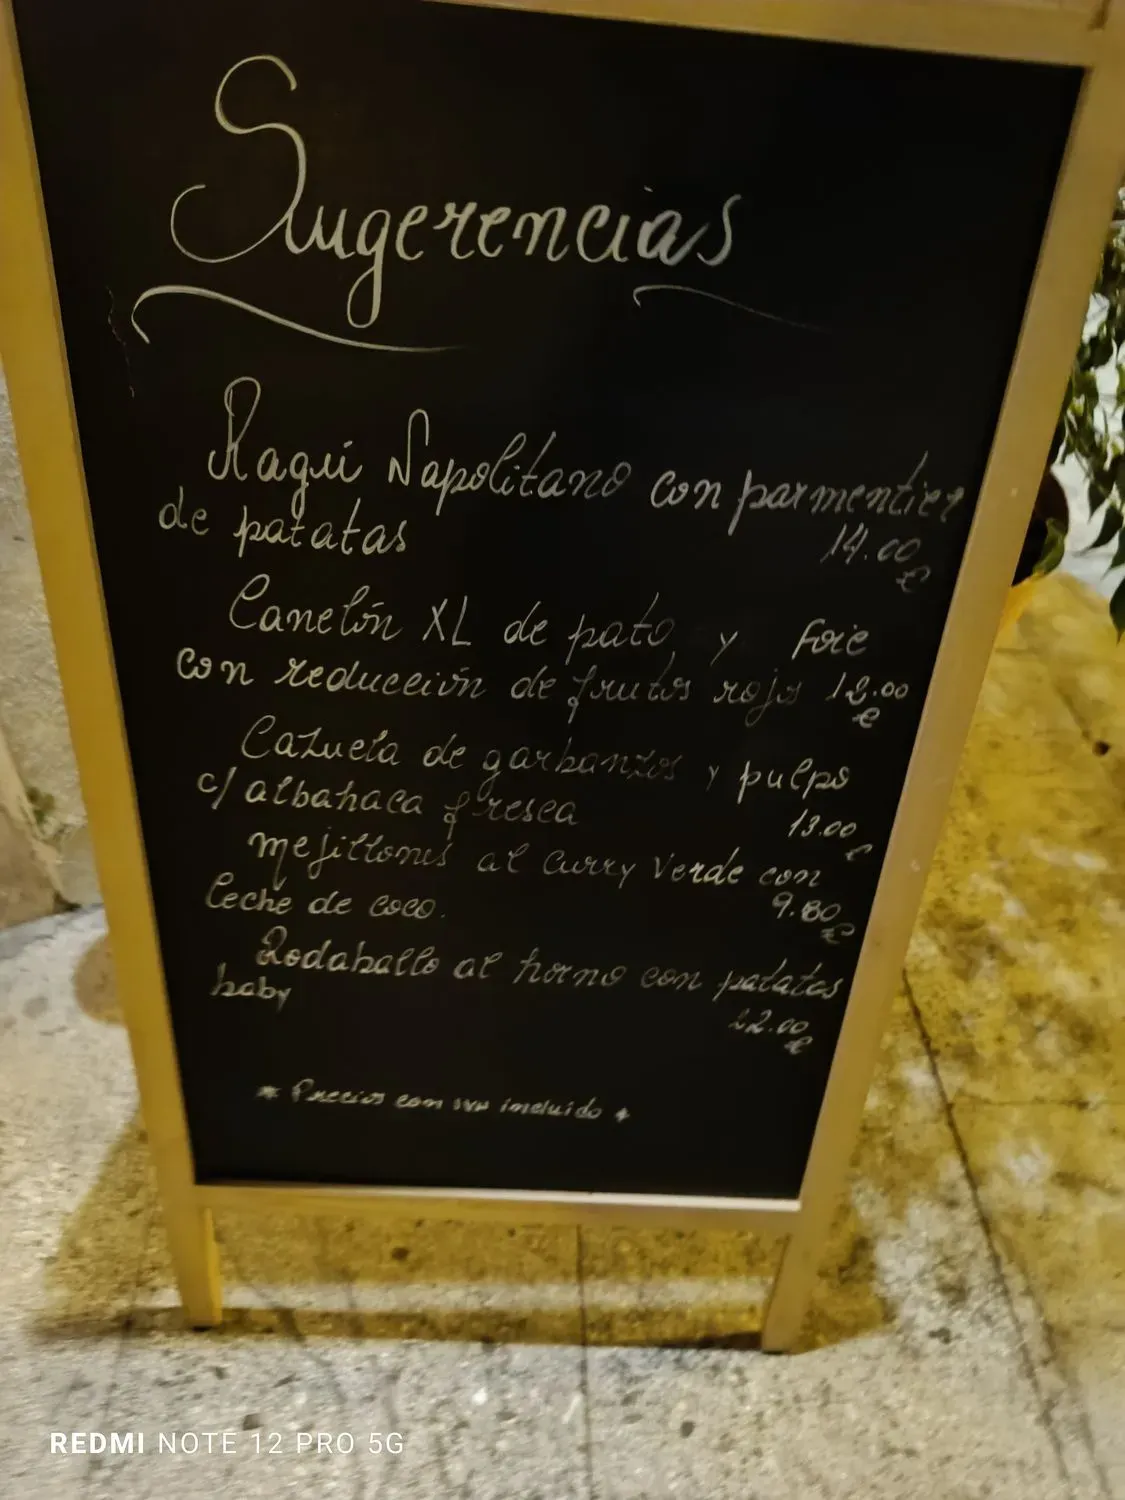 Sugerencias
Ragú Napolitano con parmentier
de patatas 14.00
€
Canelón XL de pato, y foie
con reducción de frutos rojos 12.00
€
Cazuela de garbanzos y pulpo
c/ albahaca fresca 13.00
€
mejillones al curry verde con
leche de coco. 9.80
€
Rodaballo al horno con patatas
baby
€
* Precios con IVA incluido *
REDMI NOTE 12 PRO 5G